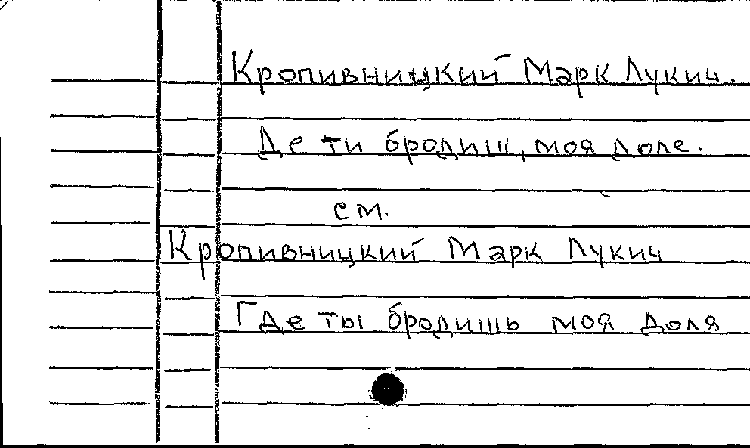 Кропивницкий Марк Лукич.
Де ти бродиш, моя доле.
см.
Кропивницкий Марк Лукич
Где ты бродишь моя доля